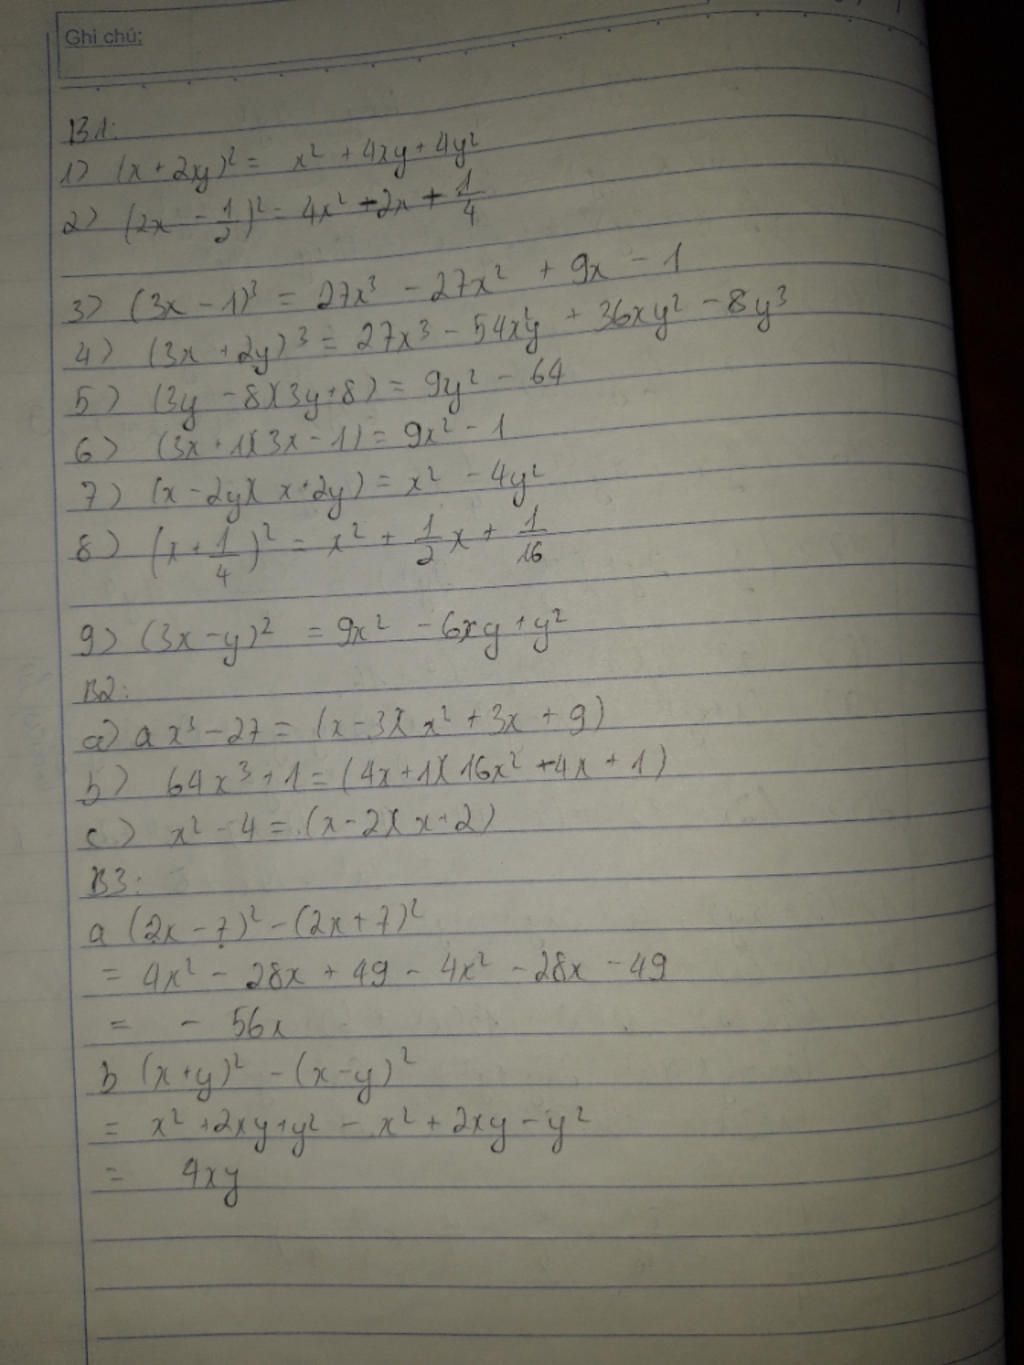 Ghi chú:
B1:
1) (x + 2xy)² = x² + 4xy + 4y²
2) (2x - 1/2)² = 4x² + 2x + 1/4
3) (3x - 1)³ = 27x³ - 27x² + 9x - 1
4) (3x + 2y)³ = 27x³ - 54x²y + 36xy² - 8y³
5) (3y - 8)(3y + 8) = 9y² - 64
6) (3x + 1)(3x - 1) = 9x² - 1
7) (x - 2y)(x + 2y) = x² - 4y²
8) (x + 1/4)² = x² + 1/2 x + 1/16
9) (3x - y)² = 9x² - 6xy + y²
B2:
a) a x³ - 27 = (x - 3)(x² + 3x + 9)
b) 64x³ + 1 = (4x + 1)(16x² + 4x + 1)
c) x² - 4 = (x - 2)(x + 2)
B3:
a (2x - 7)² - (2x + 7)²
= 4x² - 28x + 49 - 4x² - 28x - 49
= - 56x
b (x + y)² - (x - y)²
= x² + 2xy + y² - x² + 2xy - y²
= 4xy